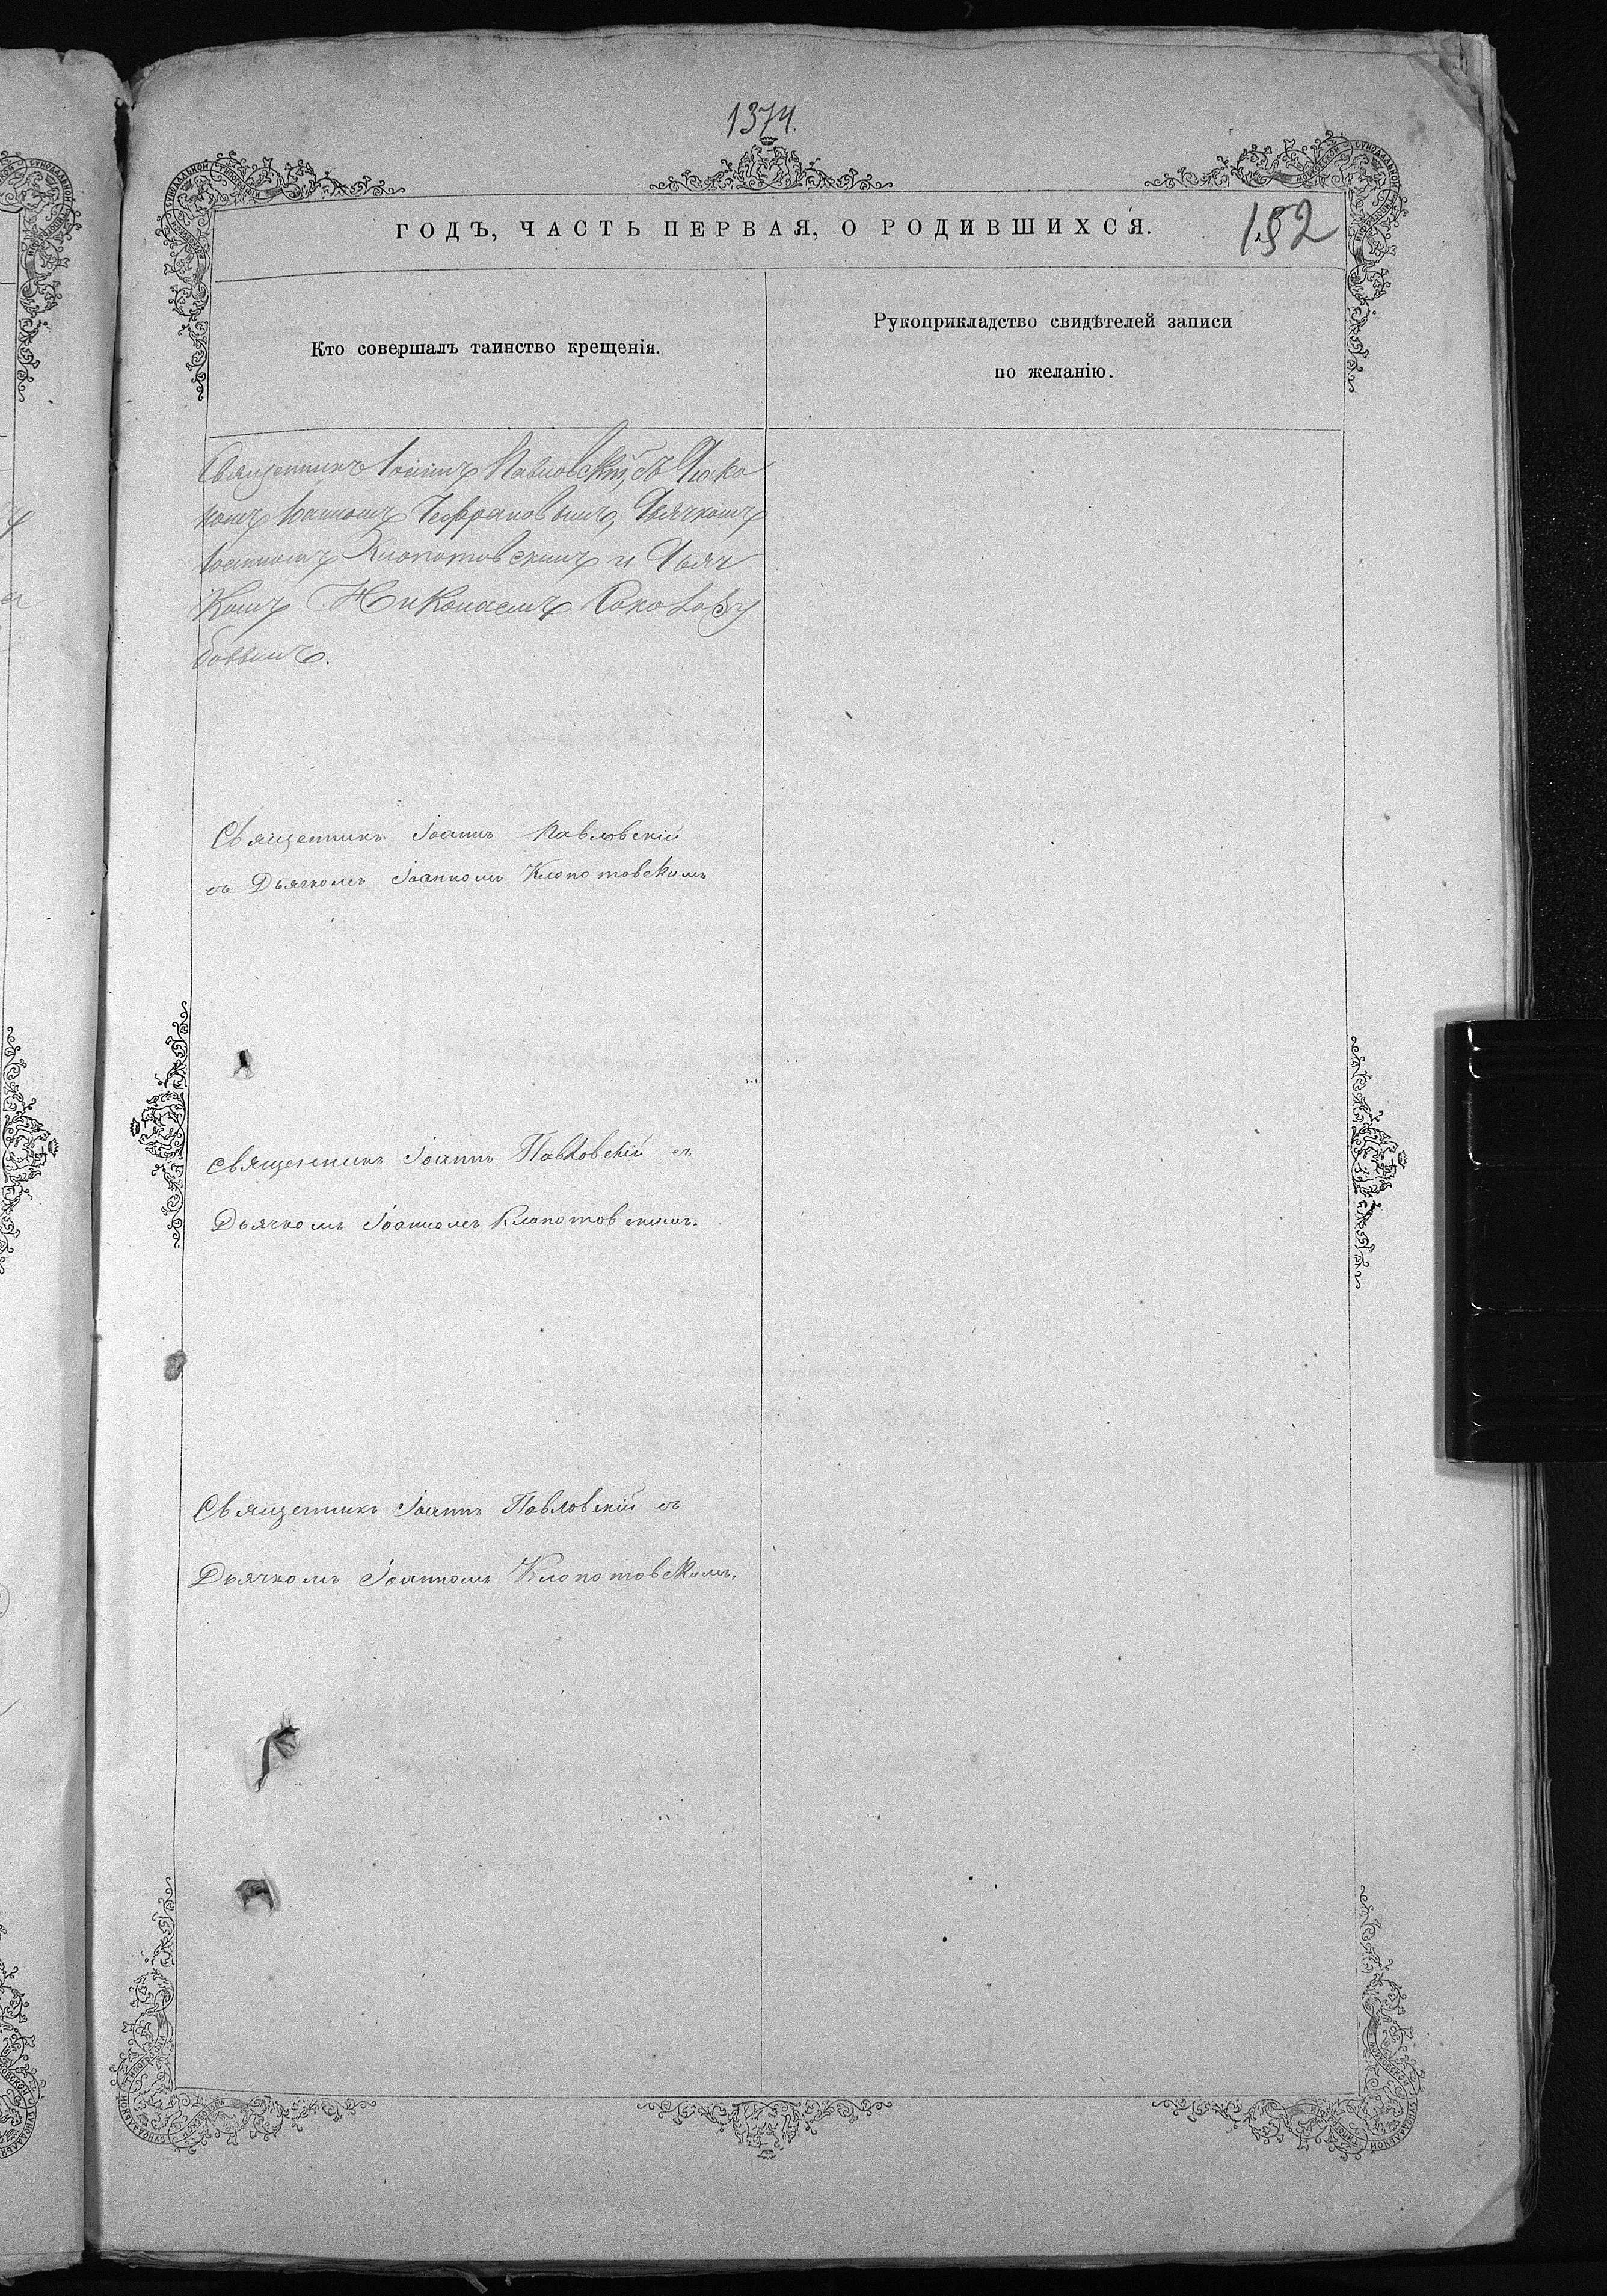 1374.
ГОДЪ, ЧАСТЬ ПЕРВАЯ, О РОДИВШИХСЯ.
152
Кто совершалъ таинство крещенія.
Рукоприкладство свидѣтелей записи
по желанію.
Священникъ Іоаннъ Павловскій, съ Діако
номъ Іоанномъ Дьячкомъ
Іоанномъ Клопотовскимъ и Дьяч
комъ Николаемъ
Священникъ Іоаннъ Павловскій
съ Дьячкомъ Іоанномъ Клопотовскимъ
Священникъ Іоаннъ Павловскій съ
Дьячкомъ Іоанномъ Клопотовскимъ.
Священникъ Іоаннъ Павловскій съ
Дьячкомъ Іоанномъ Клопотовскимъ.